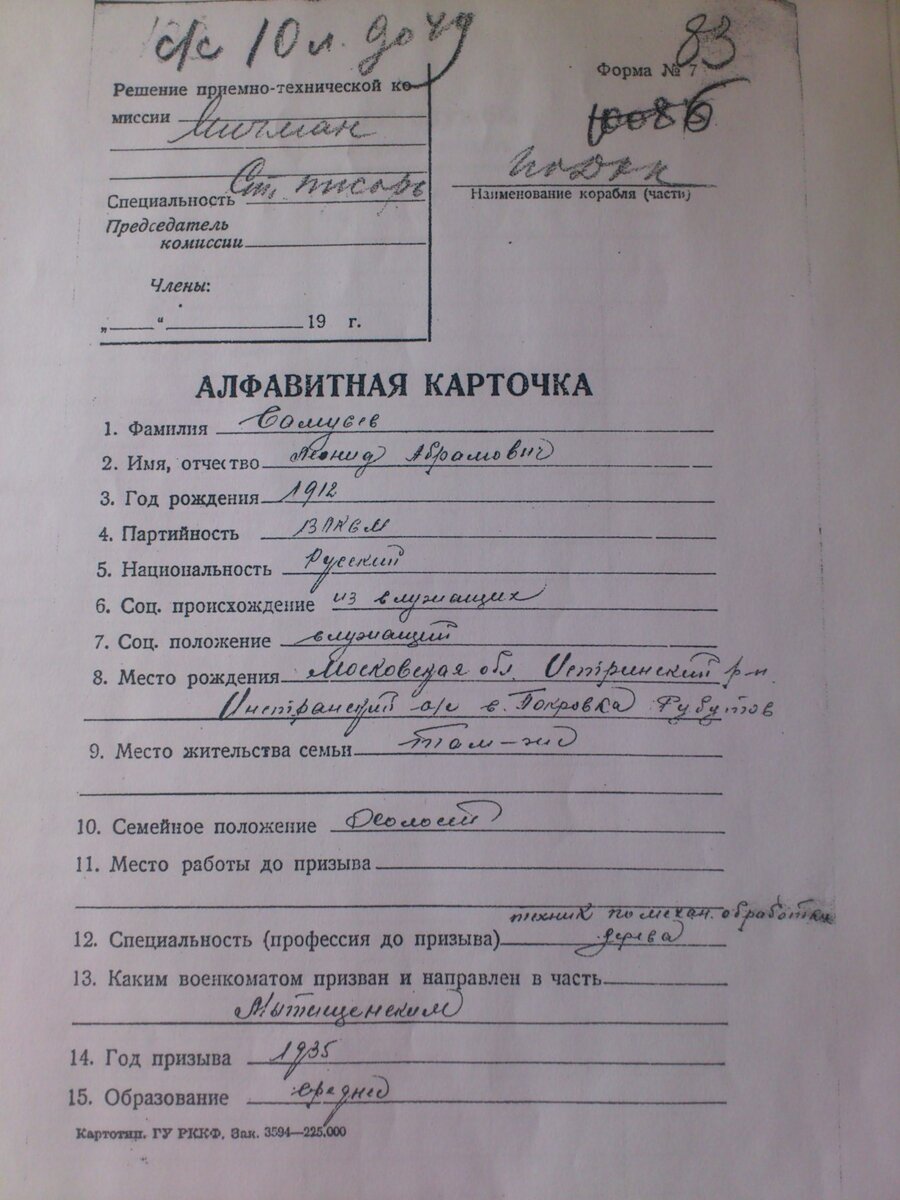 с/с 10 л. до 49
83
Форма № 7
Решение приемно-технической ко-
миссии Мичман
10086
Специальность Ст. писарь
Наименование корабля (часть)
Председатель
комиссии
Члены:
„ “ 19 г.
АЛФАВИТНАЯ КАРТОЧКА
1. Фамилия Самусев
2. Имя, отчество Леонид Абрамович
3. Год рождения 1912
4. Партийность ВЛКСМ
5. Национальность Русский
6. Соц. происхождение из служащих
7. Соц. положение служащий
8. Место рождения Московская обл. Истринский р-н.
с/с с. Покровка
9. Место жительства семьи там-же
10. Семейное положение Холост
11. Место работы до призыва
техник по механ. обработки
12. Специальность (профессия до призыва) дерева
13. Каким военкоматом призван и направлен в часть
Мытищенским
14. Год призыва 1935
15. Образование среднее
Картотип. ГУ РККФ, Зак. 3594—225.000